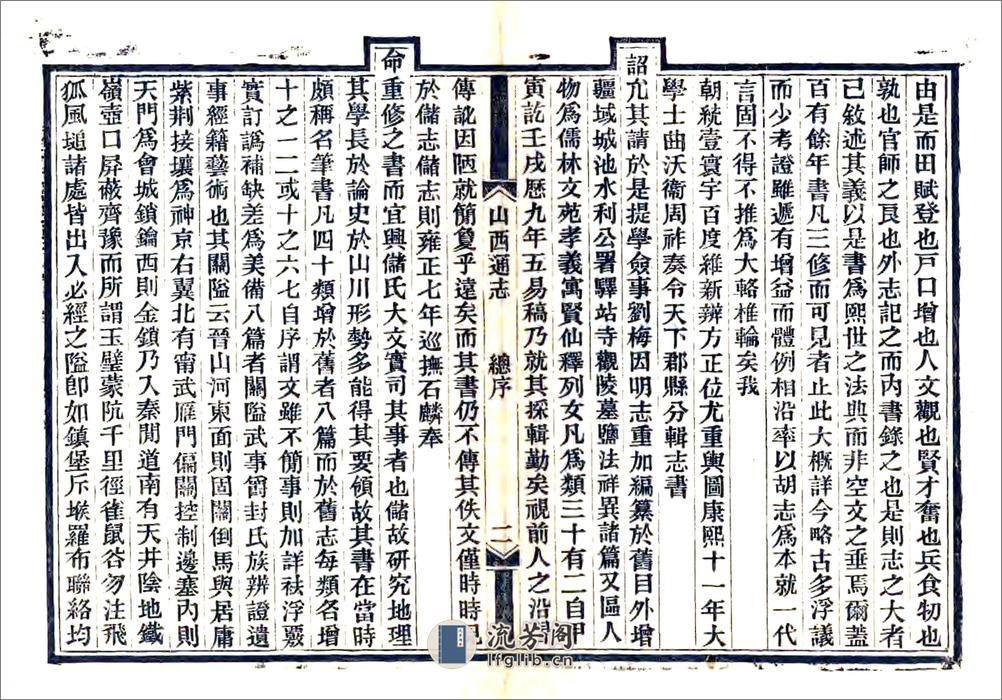 由是而田賦登也戸口增也人文觀也賢才奮也兵食物也
孰也官師之良也外志記之而內書錄之也是則志之大者
已敘述其義以是書爲熙世之法典而非空文之垂焉爾蓋
百有餘年書凡三修而可見者止此大概詳今略古多浮議
而少考證雖遞有增益而體例相沿率以胡志爲本就一代
言固不得不推爲大輅椎輪矣我
朝統壹寰宇百度維新辨方正位尤重輿圖康熙十一年大
學士曲沃衞周祚奏令天下郡縣分輯志書
詔允其請於是提學僉事劉梅因明志重加編纂於舊目外增
疆域城池水利公署驛站寺觀陵墓鹽法祥異諸篇又區人
物爲儒林文苑孝義寓賢仙釋列女凡爲類三十有二自甲
寅訖壬戌歷九年五易稿乃就其採輯勤矣視前人之沿
山西通志 總序 二
傳訛因陋就簡敻乎遠矣而其書仍不傳其佚文僅時時
於儲志儲志則雍正七年巡撫石麟奉
命重修之書而宜興儲氏大文實司其事者也儲故研究地理
其學長於論史於山川形勢多能得其要領故其書在當時
頗稱名筆書凡四十類增於舊者八篇而於舊志每類名增
十之一二或十之六七自序謂文雖不簡事則加詳袪浮覈
實訂譌補缺差爲美備八篇者關隘武事爵封氏族辨證遺
事經籍藝術也其關隘云晉山河東面則固關倒馬與居庸
紫荆接壤爲神京右翼北有甯武雁門偏關控制邊塞內則
天門爲會城鎖鑰西則金鎖乃入秦閒道南有天井陰地鐵
嶺壺口屏蔽齊豫而所謂玉壁蒙阬千里徑雀鼠谷勿注飛
狐風塠諸處皆出入必經之隘卽如鎮堡斥堠羅布聯絡均
流芳閣
lfglib.cn